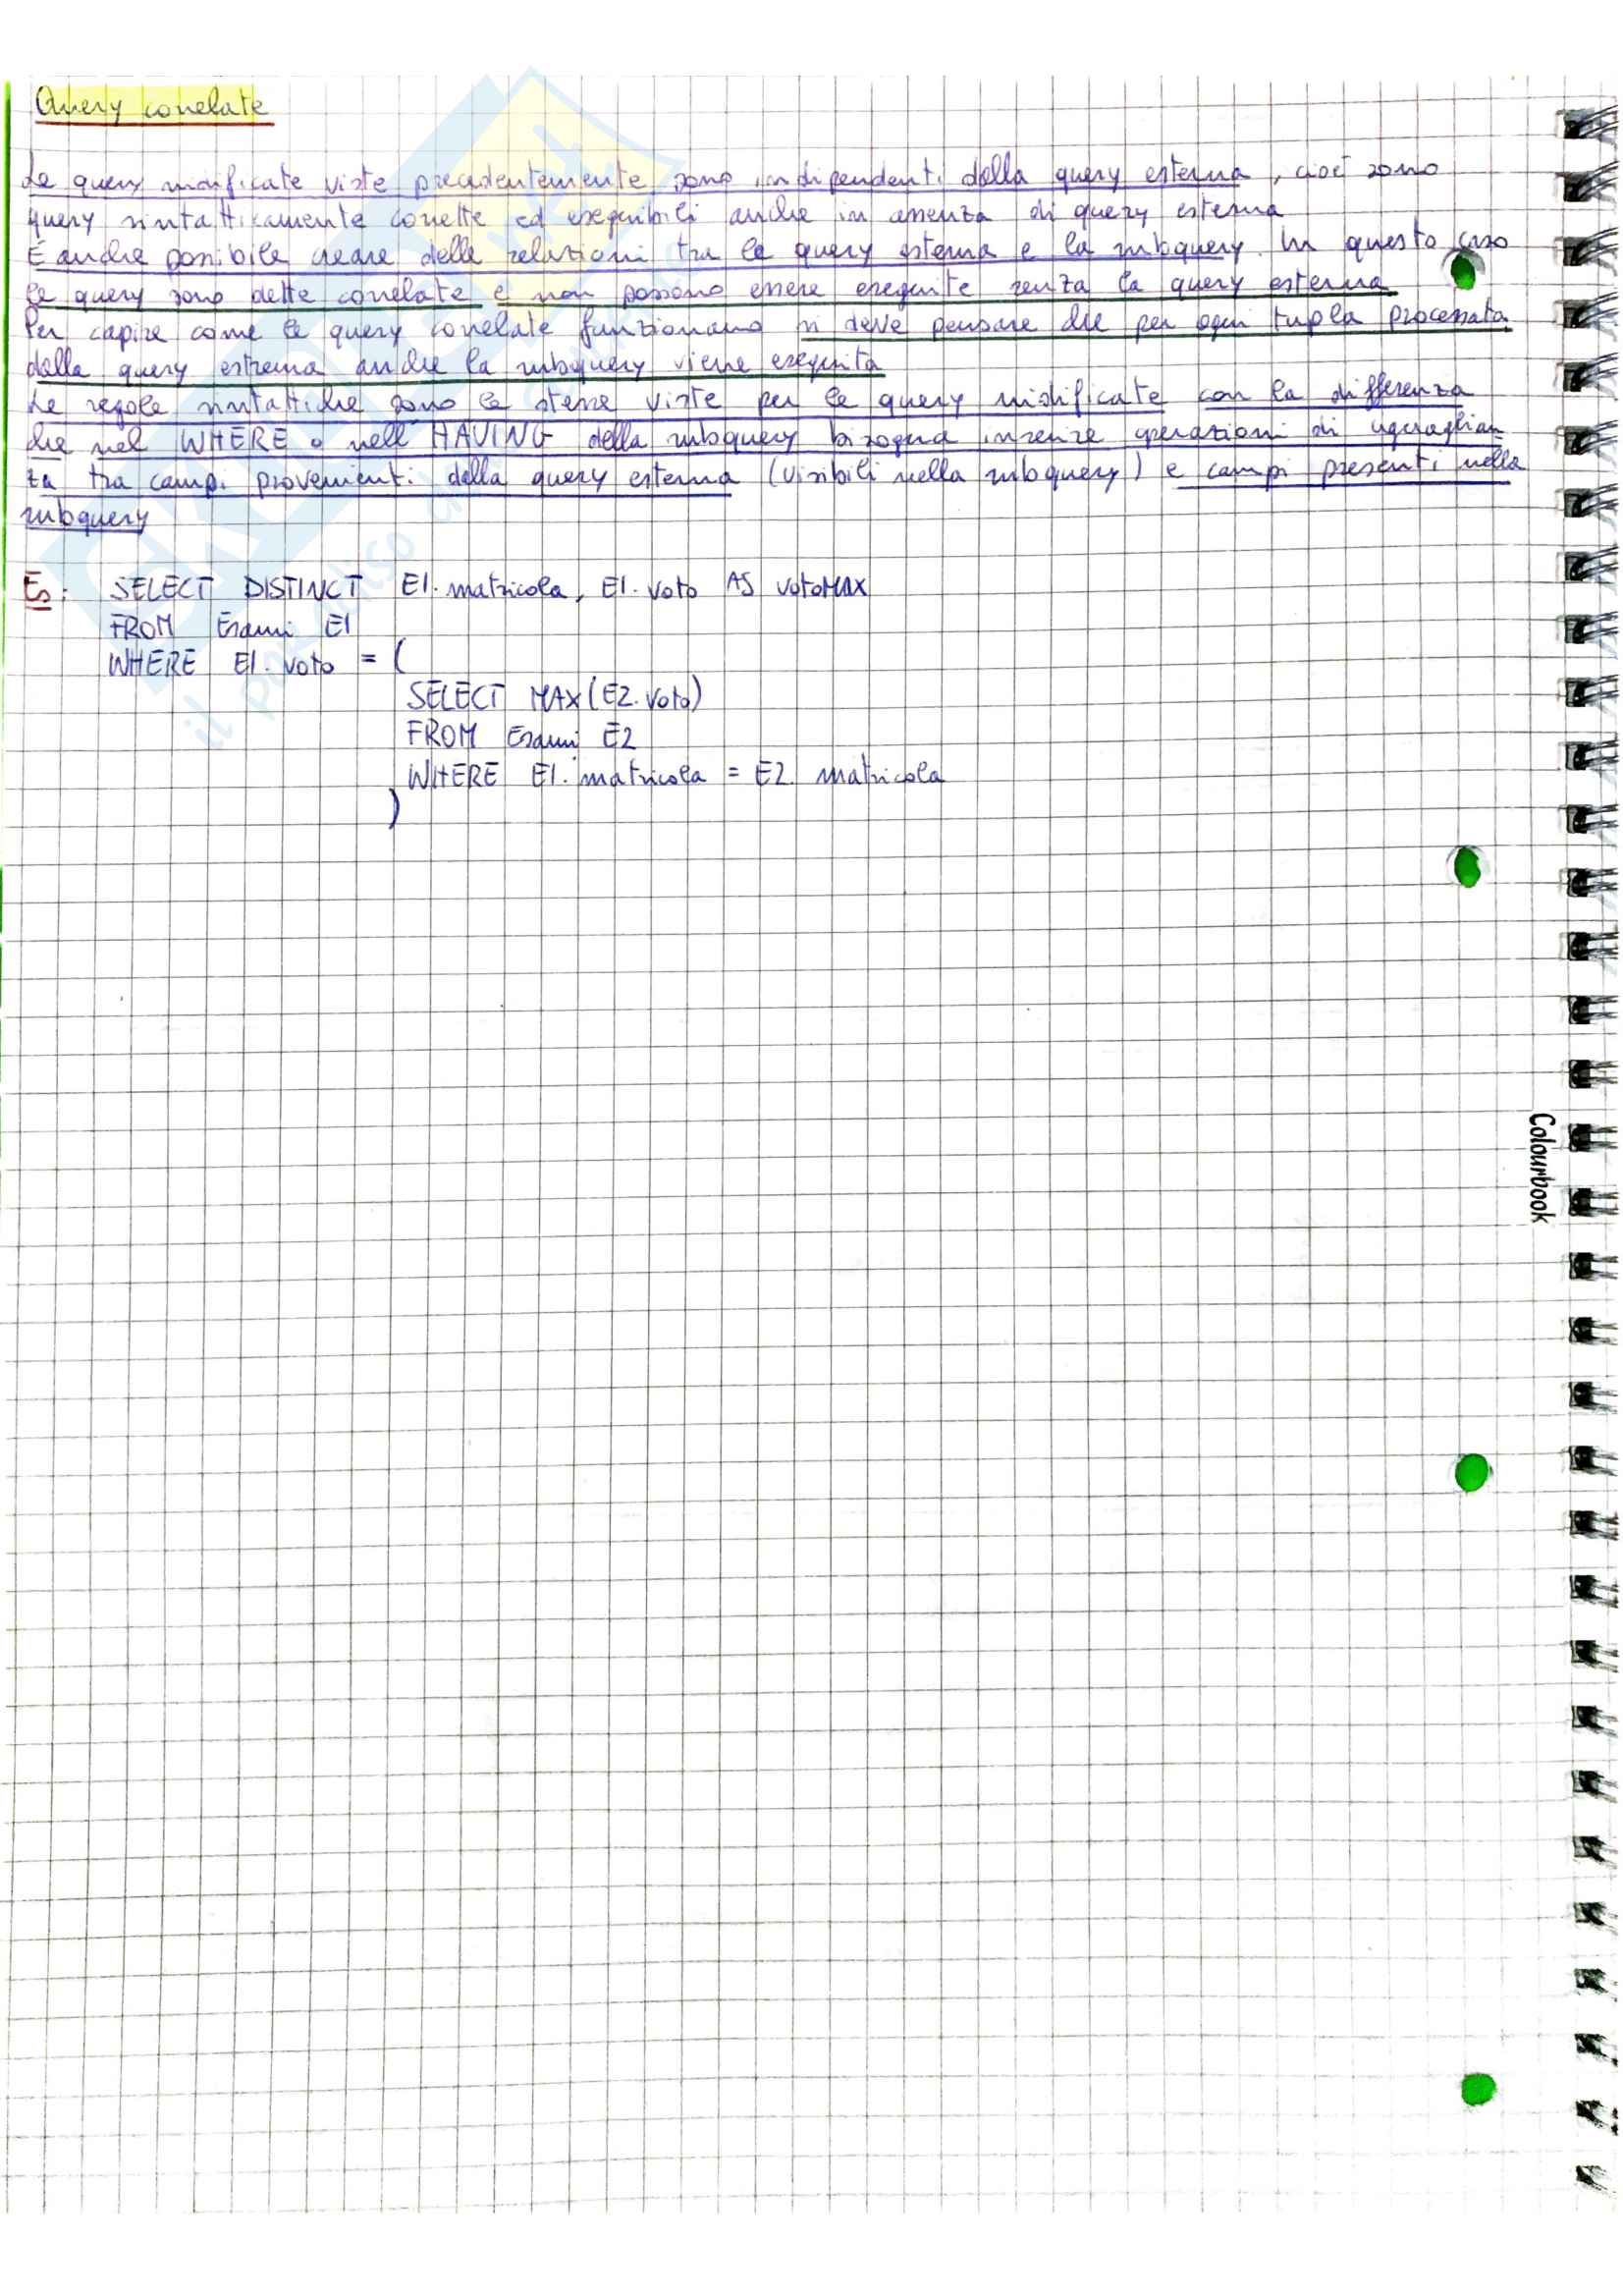 Query correlate
Le query nidificate viste precedentemente sono indipendenti dalla query esterna, cioè sono
query sintatticamente corrette ed eseguibili anche in assenza di query esterna
È anche possibile creare delle relazioni tra le query esterna e la subquery. In questo caso
le query sono dette correlate e non possono essere eseguite senza la query esterna
Per capire come le query correlate funzionano si deve pensare che per ogni tupla processata
dalla query estrema anche la subquery viene eseguita
Le regole sintattiche sono le stesse viste per le query nidificate con la differenza
che nel WHERE o nell'HAVING della subquery bisogna inserire operazioni di uguaglian
za tra campi provenienti dalla query esterna (visibili nella subquery) e campi presenti nella
subquery
Es: SELECT DISTINCT E1.matricola, E1.voto AS votoMAX
FROM Esami E1
WHERE E1.voto = (
SELECT MAX(E2.voto)
FROM Esami E2
WHERE E1.matricola = E2.matricola
)
Colourbook